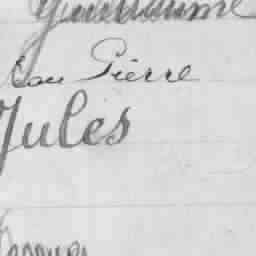 Guillaume
Jean Pierre
Jules